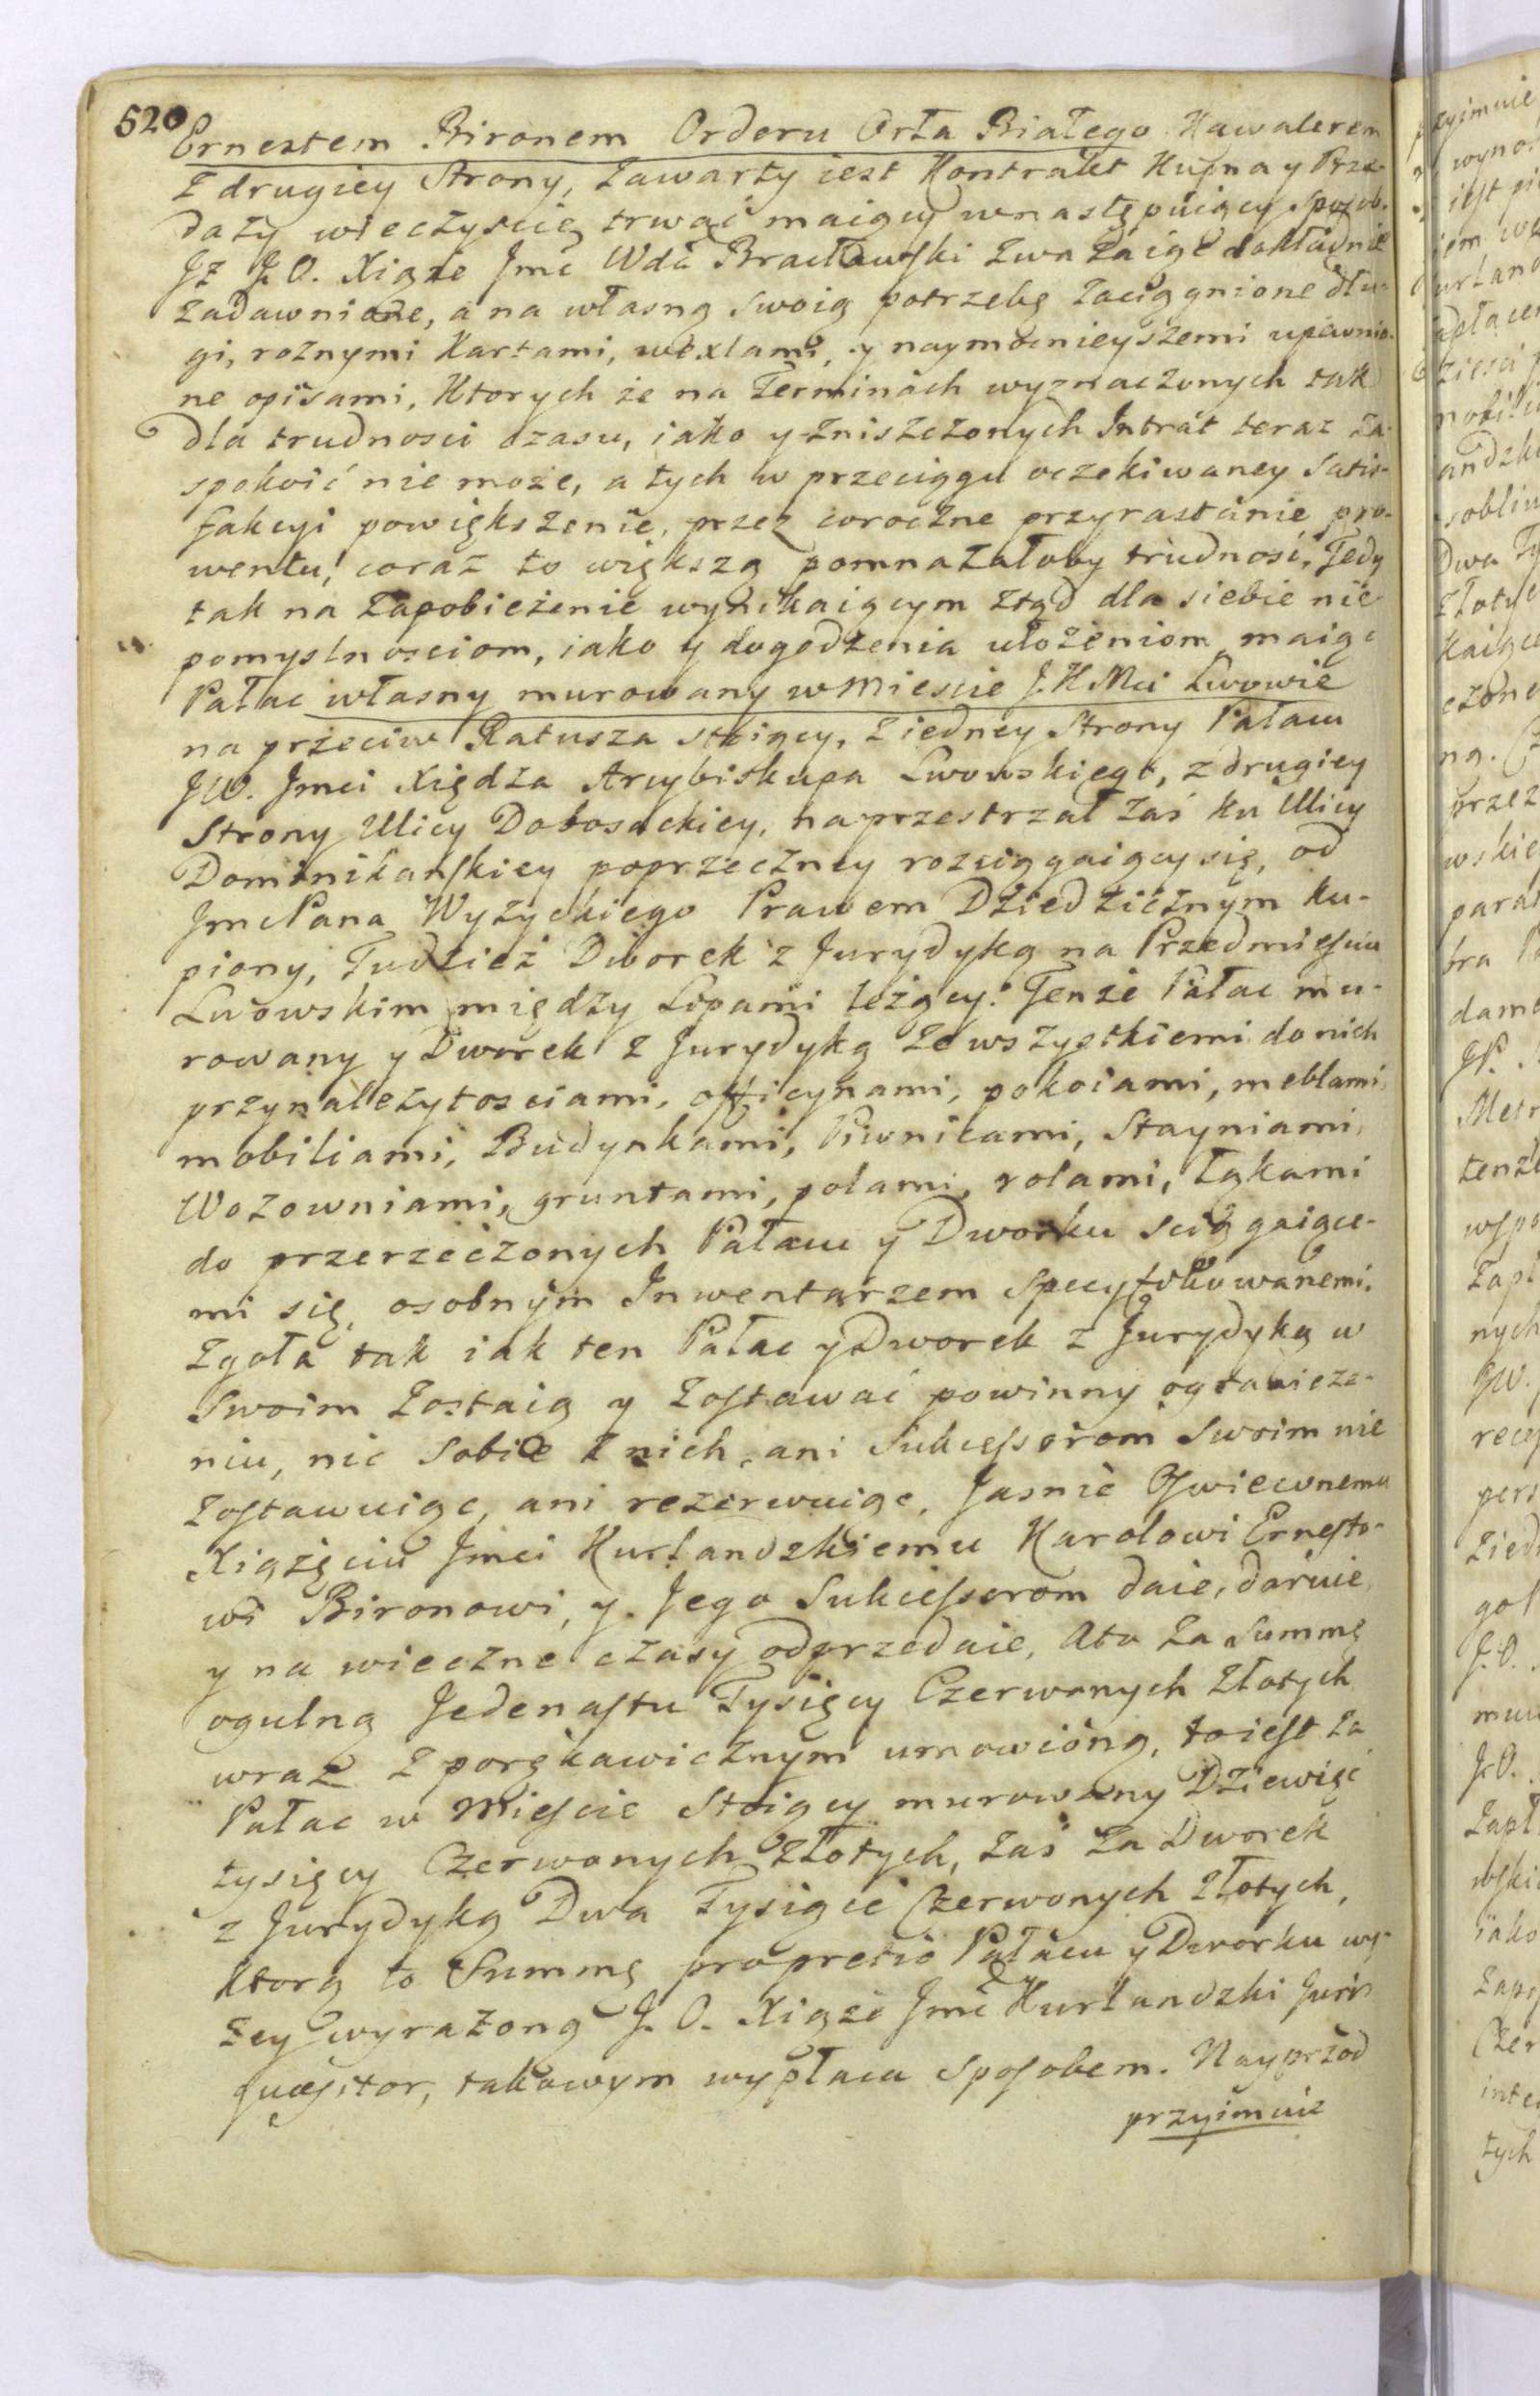 520
Ernestem Bironem Orderu Orła Białego Kawalerem
Z drugiey Strony, Zawarty iest Kontrakt Kupna y Prze-
daży wieczyscie trwać maiący wnastępuiący sposob.
Jż J. O. Xiąże Jmć Wda Bracławski Zważaiąc dokładnie
Zadawnione, a na własną swoią potrzebę Zaciągnione dłu-
gi, rożnymi Kartami, wexlami, y naymocnieyszemi upewnio-
ne opisami, Ktorych że na Terminach wyznaczonych tak
dla trudnosci czasu, iako y zniszczonych Intrat teraz Za-
spokoić nie może, a tych w przeciągu oczekiwaney Satis-
fakcyi powiększenie, przez coroczne przyrastanie pro-
wentu, coraz to większą pomnażałoby trudność, Tedy
tak na Zapobieżenie wynikaiącym ztąd dla siebie nie
pomyslnosciom, iako y dogodzenia ułożeniom, maiąc
Pałac własny murowany w Miescie J. K. Mci Lwowie
na przeciw Ratusza stoiący, Ziedney Strony Pałacu
JW. Jmci Xiędza Arcybiskupa Lwowskiego, z drugiey
Strony Ulicy Dobosackiey, naprzestrzał Zaś ku Ulicy
Dominikańskiey poprzeczney rozciągaiącysię, od
Jmc Pana Wyżyckiego Prawem Dziedzicznym ku-
piony, Tudzież Dworek z Jurydyką na Przedmiesciu
Lwowskim między Lipami leżący. Tenże Pałac mu-
rowany y Dworek z Jurydyką Ze wszystkiemi do nich
przynależytosciami, officynami, pokoiami, meblami,
mobiliami, Budynkami, Piwnicami, Stayniami,
Wozowniami, gruntami, polami, rolami, łąkami
do przerzeczonych Pałacu y Dworku sciągaiące-
mi się, osobnym Inwentarzem specyfikowanemi.
Zgoła tak iak ten Pałac y Dworek z Jurydyką w
Swoim Zostaią y Zostawać powinny ograniczę-
niu, nic Sobie Z nich, ani Sukcessorom Swoim nie
Zostawuiąc, ani rezerwuiąc, Jasnie Oswieconemu
Xiążęciu Jmci Kurlandzkiemu Karolowi Ernesto-
wi Bironowi, y Jego Sukcessorom daie, daruie,
y na wieczne czasy odprzedaie, Ato Za Summę
ogulną Jedenastu Tysięcy Czerwonych Złotych
wraz Z porękawicznym umowioną, toiest Za
Pałac w Miescie Stoiący murowany Dziewięć
tysięcy Czerwonych Złotych, Zaś Za Dworek
z Jurydyką Dwa Tysiące Czerwonych Złotych,
Ktorą to Summę propretio Pałacu y Dworku wy-
żey wyrażoną J. O. Xiąże Jmć Kurlandzki Juris
quæsitor, takowym wypłaca sposobem. Nayprzod
przyimuie